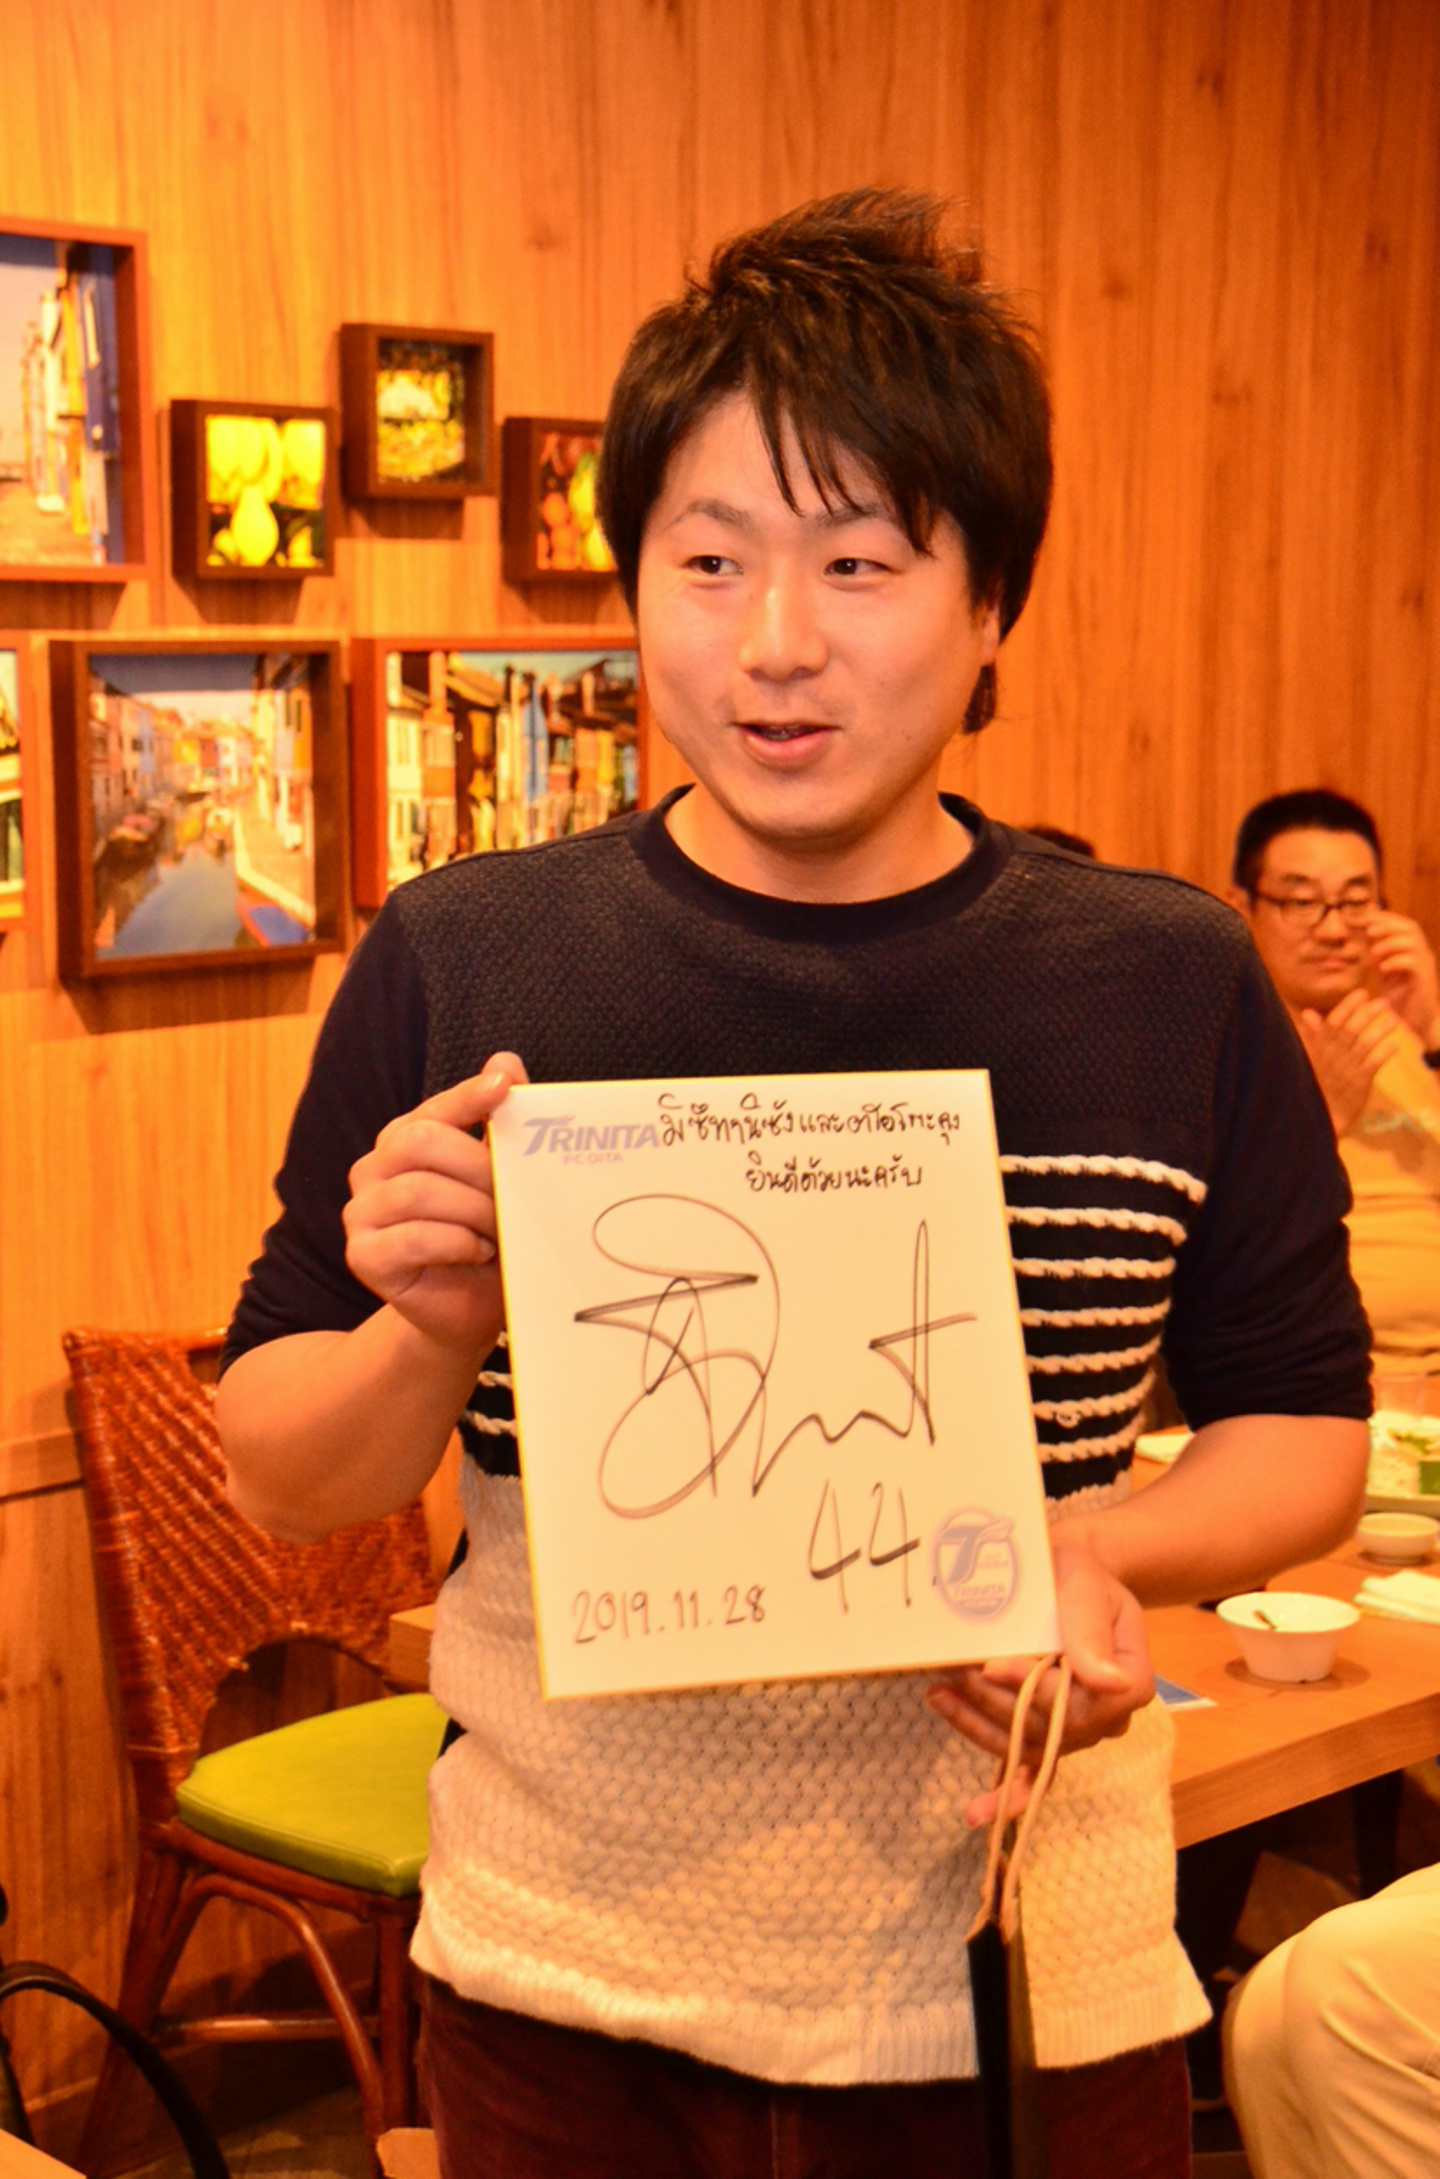 TRINITA
FC OITA
มิซึทานิซังและอาโอโทะคุง
ยินดีด้วยนะครับ
44
2019.11.28
TRINITA